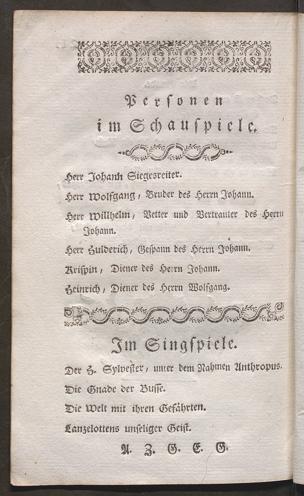 Personen
im Schauspiele.
Herr Johann Siegsreiter.
Herr Wolfgang, Bruder des Herrn Johann.
Herr Willhelm, Vetter und Vertrauter des Herrn
Johann.
Herr Hulderich, Gespann des Herrn Johann.
Krispin, Diener des Herrn Johann.
Heinrich, Diener des Herrn Wolfgang.
Im Singspiele.
Der H. Sylvester, unter dem Nahmen Anthropus.
Die Gnade der Busse.
Die Welt mit ihren Gefährten.
Lanzelottens unseliger Geist.
A. Z. G. E. G.